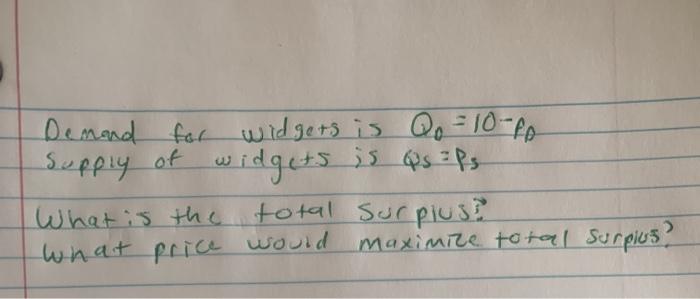 Demand for widgets is Q_D = 10 - P_D
Supply of widgets is Q_S = P_S
What is the total surplus?
What price would maximize total surplus?